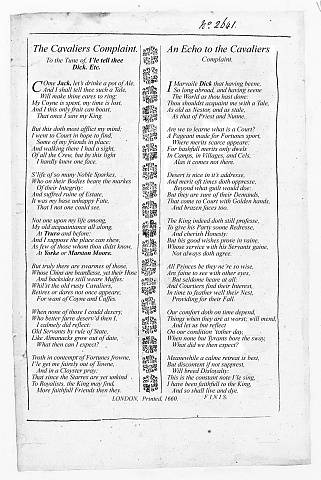 No 2641.
The Cavaliers Complaint.
To the Tune of, I'le tell thee
Dick, Etc.
COme Jack, let's drinke a pot of Ale,
And I shall tell thee such a Tale,
Will make thine eares to ring;
My Coyne is spent, my time is lost,
And I this only fruit can boast,
That once I saw my King.
But this doth most afflict my mind;
I went to Court in hope to find,
Some of my friends in place:
And walking there I had a sight,
Of all the Crew, but by this light
I hardly knew one face.
S'life of so many Noble Sparkes,
Who on their Bodies beare the markes
Of their Integrity:
And suffred ruine of Estate,
It was my base unhappy Fate,
That I not one could see.
Not one upon my life, among,
My old acquaintance all along,
At Truro and before;
And I suppose the place can show,
As few of those whom thou didst know,
At Yorke or Marston Moore.
But truly there are swarmes of those,
Whose Chins are beardlesse, yet their Hose
And backsides still weare Muffes:
Whil'st the old rusty Cavaliers,
Retires or dares not once appeare,
For want of Coyne and Cuffes.
When none of those I could descry,
Who better farre deserv'd then I,
I calmely did reflect:
Old Servants by rule of State,
Like Almanacks grow out of date,
What then can I expect?
Troth in contempt of Fortunes frowne,
I'le get me fairely out of Towne,
And in a Cloyster pray:
That since the Starres are yet unkind
To Royalists, the King may find,
More faithfull Friends then they.
An Echo to the Cavaliers
Complaint.
I Marvaile Dick that having beene,
So long abroad, and having seene
The World as thou hast done:
Thou shouldst acquaint me with a Tale,
As old as Nestor, and as stale,
As that of Priest and Nunne.
Are we to learne what is a Court?
A Pageant made for Fortunes sport,
Where merits scarce appeare:
For bashfull merits only dwels
In Camps, in Villages, and Cels,
Alas it comes not there.
Desert is nice in it's addresse,
And merit oft times doth oppresse,
Beyond what guilt would doe:
But they are sure of their Demands,
That come to Court with Golden hands,
And brazen faces too.
The King indeed doth still professe,
To give his Party soone Redresse,
And cherish Honesty:
But his good wishes prove in vaine,
Whose service with his Servants gaine,
Not always doth agree.
All Princes be they ne're so wise,
Are faine to see with other eyes,
But seldome heare at all:
And Courtiers find their Interest,
In time to feather well their Nest,
Providing for their Fall.
Our comfort doth on time depend,
Things when they are at worst, will mind,
And let us but reflect
On our condition 'tother day,
When none but Tyrants bore the sway,
What did we then expect?
Meanewhile a calme retreat is best,
But discontent if not supprest,
Will breed Disloyalty:
This is the constant note I'le sing,
I have been faithfull to the King,
And so shall live and dye.
LONDON, Printed, 1660. FINIS.